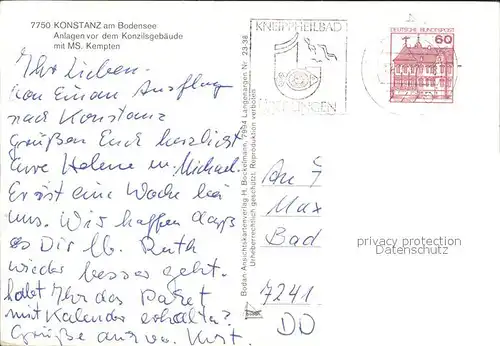 7750 KONSTANZ am Bodensee
Anlagen vor dem Konzilsgebäude
mit MS. Kempten
Ihr Lieben.
Von einem Ausflug
nach Konstanz
grüßen Euch herzlichst
Eure Helene m. Michael.
Er ist eine Woche bei
uns. Wir hoffen dass
es Dir lb. Ruth
wieder besser geht.
habt Ihr das Paket
mit Kalender erhalten?
Grüße auch v. Kurt.
Bodan-Ansichtskartenverlag H. Bockelmann, 7994 Langenargen Nr. 23-38
Urheberrechtlich geschützt. Reproduktion verboten
KNEIPPHEILBAD
DEUTSCHE BUNDESPOST
60
An F
Max
Bad
7241
DD
privacy protection
Datenschutz